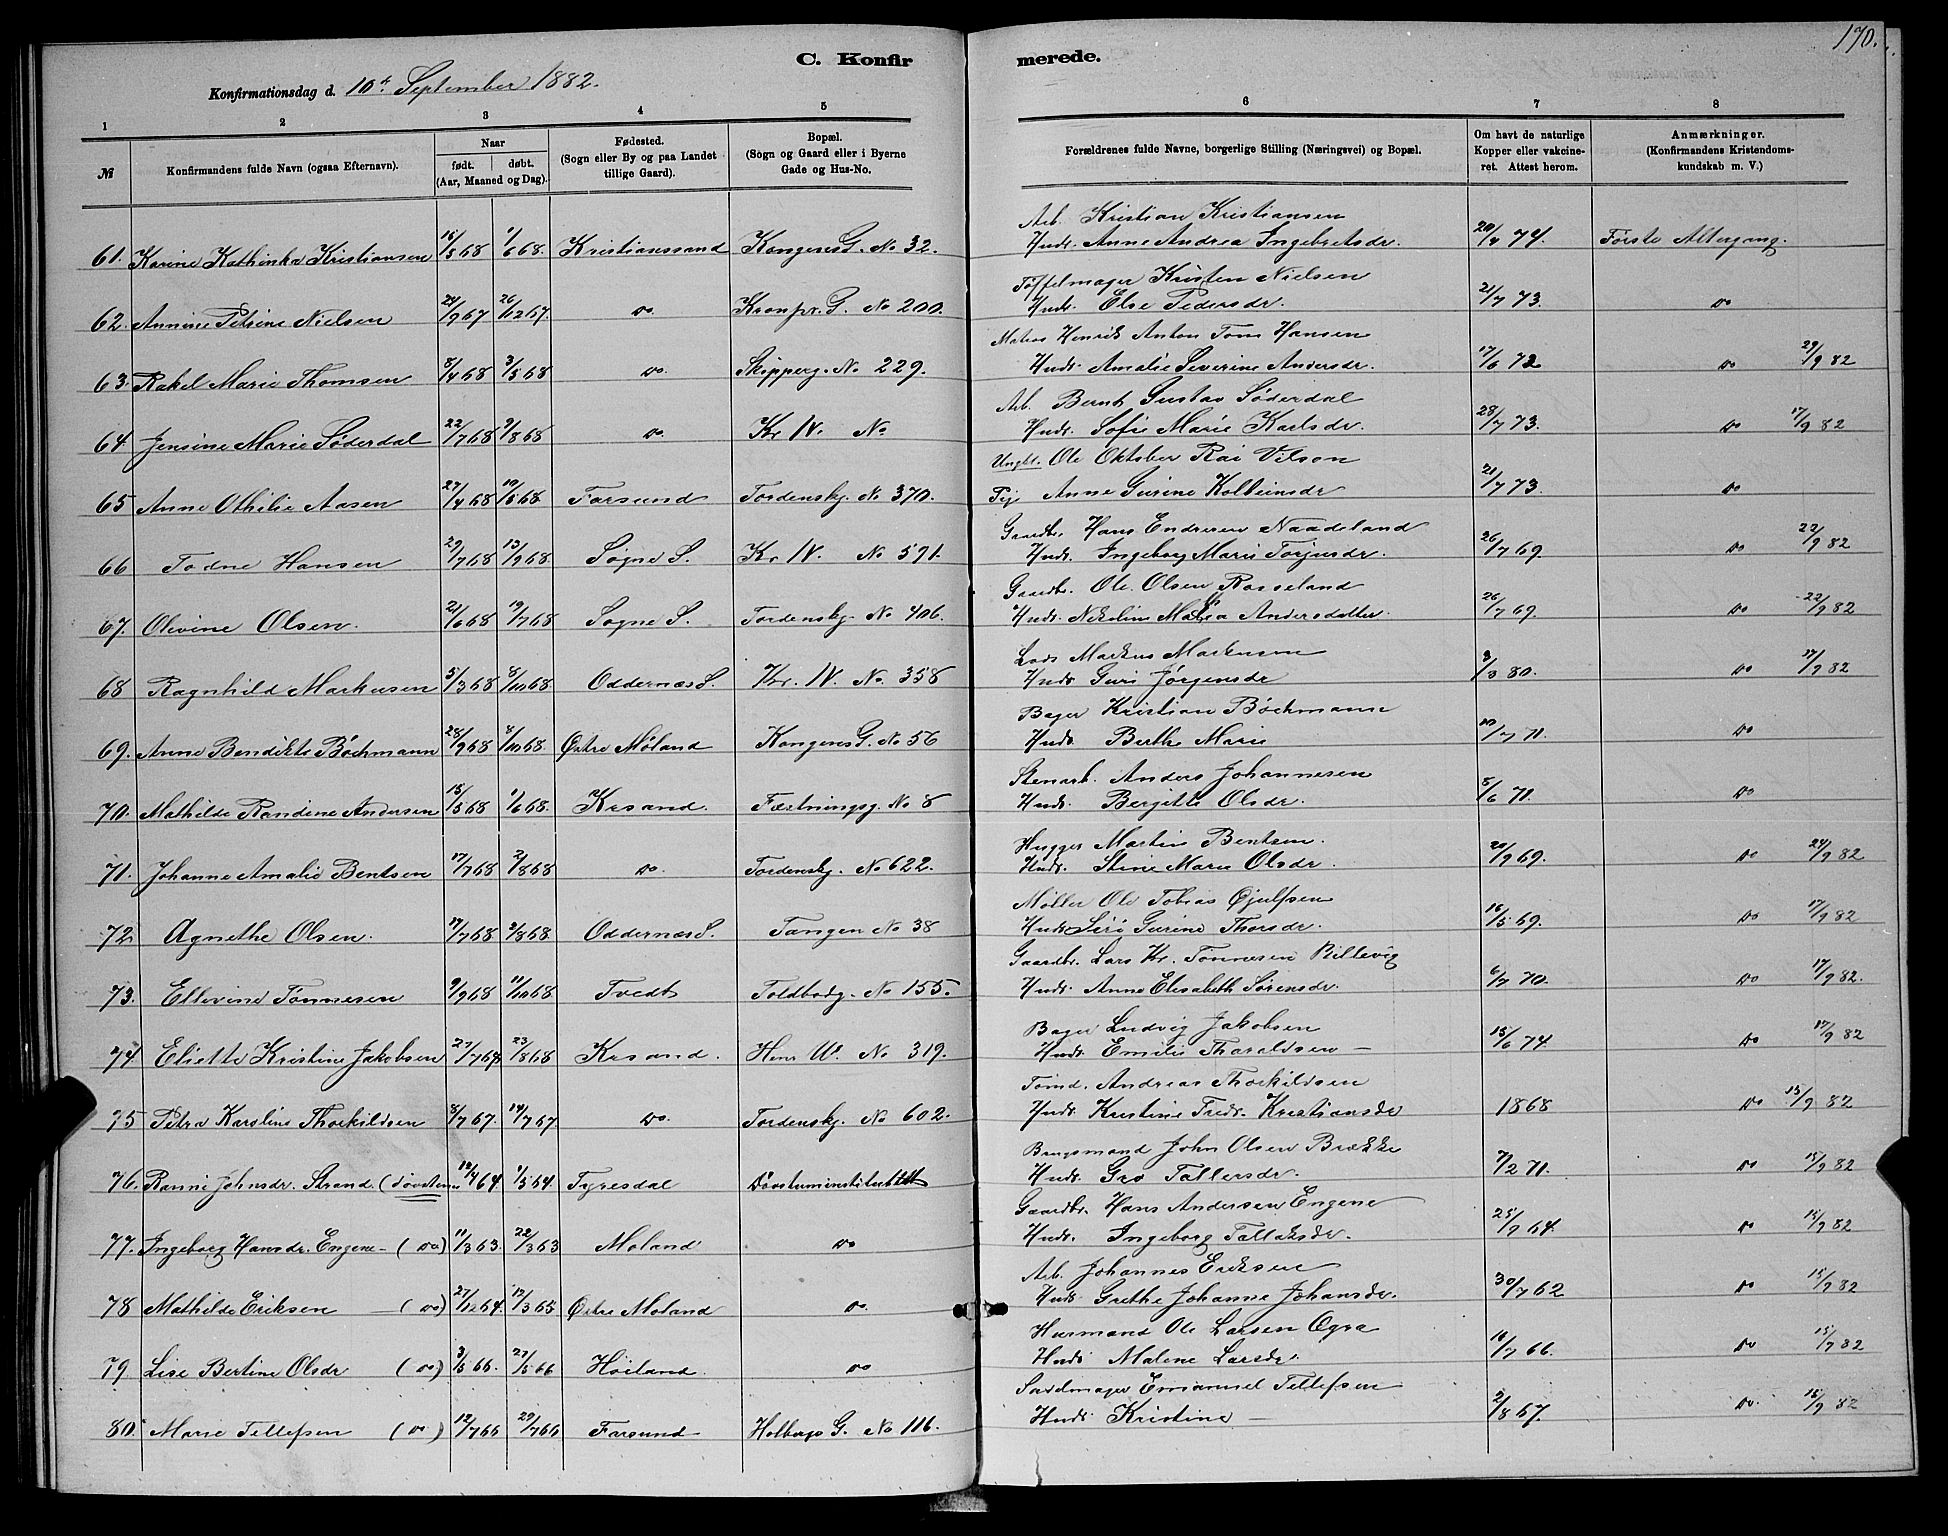 170.
C. Konfir
merede.
Konfirmationsdag d. 10de September 1882.
1 2 3 4 5 6 7 8
№ Konfirmandens fulde Navn (ogsaa Efternavn). Naar født. døbt. (Aar, Maaned og Dag). Fødested. (Sogn eller By og paa Landet tillige Gaard). Bopæl. (Sogn og Gaard eller i Byerne Gade og Hus-No. Forældrenes fulde Navne, borgerlige Stilling (Næringsvei) og Bopæl. Om havt de naturlige Kopper eller vakcineret. Attest herom. Anmærkninger. (Konfirmandens Kristendomskundskab m. V.)
Arb. Kristian Kristiansen
61. Karine Kathinka Kristiansen 16/5 68 1/6 68. Kristianssand Kongens G. No 32. Hust. Anne Andrea Ingebretsdr. 20/7 74. Første Altergang.
Tøffelmager Kristen Nielsen
62. Annine Petrine Nielsen 24/9 67 26/12 67. do. Kronpr. G. No 200. Hust. Else Pedersdr. 21/7 73. do
Matros Henrik Anton Tom Hansen
63. Rakel Marie Thomsen 8/4 68 3/5 68 do. Skipperg. No 229. Hust. Amalie Severine Andersdr. 17/6 72 do 29/9 82
Arb. Bernt Gustav Söderdal
64. Jensine Marie Söderdal 22/7 68 9/8 68 do. Kr. IV. No Hust. Sofie Marie Karlsdr. 28/7 73. do 17/9 82
Ungk. Ole Oktober Rai Vilson
65 Anne Othilie Aasen 27/4 68 10/5 68 Farsund Tordenskj. No 370. Pige Anne Gurine Kolbeinsdr 21/7 73. do
Gaardbr. Hans Endresen Naadeland
66 Todne Hansen 29/7 68 13/9 68. Søgne S. Kr. IV. No 591. Hust. Ingeborg Marie Torjusdr. 26/7 69. do 22/9 82
Gaardbr. Ole Olsen Rosseland
67. Olivine Olsen. 21/6 68 19/7 68 Søgne S. Tordenskj. No 406. Hust. Nikoline Maria Andersdatter. 26/7 69. do 22/9 82
Lods Markus Markusen
68 Ragnhild Markusen 5/3 68 8/10 68. Oddernæs S. Kr. IV. No 358 Hust. Guri Jørgensdr 3/3 80. do 17/9 82
Bager Kristian Böchmann
69. Anne Bendikte Böchmann 28/9 68 4/10 68. Østre Moland Kongens G. No 56 Hust. Berthe Marie 10/7 71. do
Stenarb. Anders Johannesen
70. Mathilde Randine Andersen 15/5 68 1/6 68. Krsand. Fæstningsg. No 8 Hust. Bergitte Olsdr. 8/6 71. do
Hugger Martin Bentsen.
71. Johanne Amalie Bentsen 17/7 68 2/8 68 do. Tordenskj. No 622. Hust. Stine Marie Olsdr. 20/9 69. do 24/9 82
Møller Ole Tobias Gjulfsen
72. Agnethe Olsen. 17/7 68 9/8 68 Oddernæs S. Tangen No 38 Hust. Siri Gurine Thorsdr. 16/5 69. do 17/9 82
Gaardbr. Lars Kr. Tönnesen Rillevig
73. Ellevine Tönnesen 9/9 68 11/10 68 Tvedt Toldbodg. No 155. Hust. Anne Elisabeth Sörensdr. 6/7 70. do 17/9 82.
Bager Ludvig Jakobsen
74. Eliette Kristine Jakobsen 27/7 68 23/8 68 Krsand. Henr W. No 319. Hust. Emilie Tharaldsen — 15/6 74. do 17/9 82
Tømd. Andreas Thorkildsen
75 Petra Karoline Thorkildsen 8/7 67. 14/7 67 do. Tordenskj. No 602. Hust. Kristine Fredr. Kristiansdr 1868 do 15/9 82
Brugsmand John Olsen Brække
76. Ranni Johnsdr. Strand (døvstum 12/4 64 1/5 64. Tyresdal Døvstuminstituttet Hust. Gro Tallersdr. 7/2 71. do 15/9 82
Gaardbr. Hans Andersen Engene
77. Ingeborg Hansdr. Engene - (do) 11/3 63. 22/3 63 Moland do Hust. Ingeborg Tallaksdr. 25/9 64. do 15/9 82
Arb. Johannes Eriksen
78 Mathilde Eriksen — (do) 27/12 64. 12/3 65 Østre Moland do. Hust. Grethe Johanne Johansdr. 30/7 62 do 15/9 82
Husmand Ole Larsen Ogra
79. Lise Bertine Olsdr (do) 3/5 66. 27/5 66 Höiland do Hust. Malene Larsdr. 16/7 66. do 15/9 82
Sadelmager Emanuel Tellefsen
80. Marie Tellefsen (do) 12/7 66 29/7 66 Farsund Holbergs G. No 116. Hust. Kristine — 2/8 67. do. 15/9 82